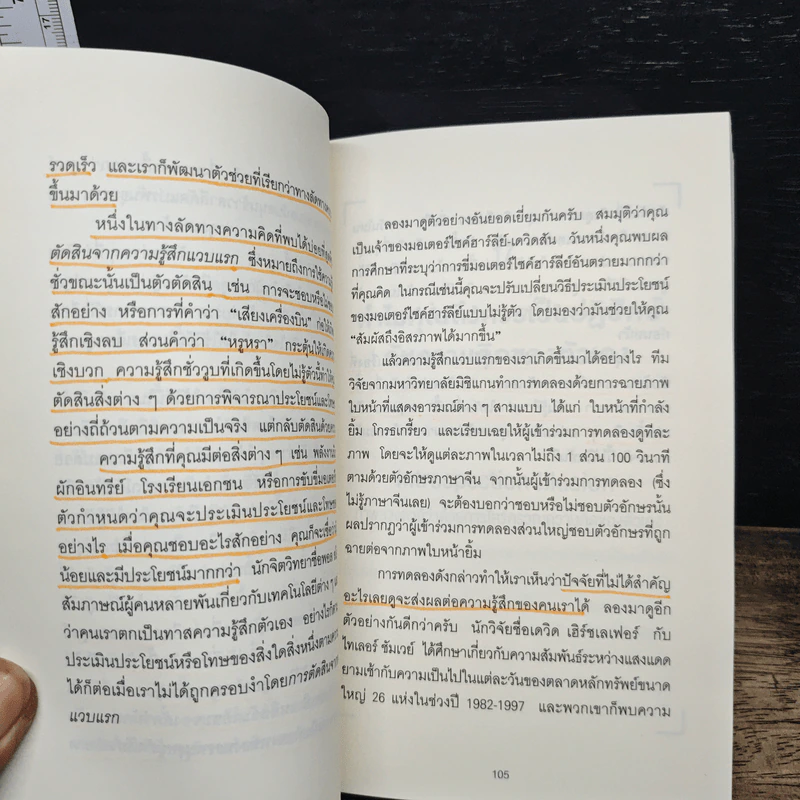 17
รวดเร็ว และเราก็พัฒนาตัวช่วยที่เรียกว่าทางลัดทาง
ขึ้นมาด้วย
หนึ่งในทางลัดทางความคิดที่พบได้บ่อยที่สุด
ตัดสินจากความรู้สึกแวบแรก ซึ่งหมายถึงการใช้ความ
ชั่วขณะนั้นเป็นตัวตัดสิน เช่น การจะชอบหรือไม่
สักอย่าง หรือการที่คำว่า “เสียงเครื่องบิน” ก่อให้
รู้สึกเชิงลบ ส่วนคำว่า “หรูหรา” กระตุ้นให้เกิด
เชิงบวก ความรู้สึกชั่ววูบที่เกิดขึ้นโดยไม่รู้ตัวนี้ทำให้
ตัดสินสิ่งต่าง ๆ ด้วยการพิจารณาประโยชน์และโทษ
อย่างถี่ถ้วนตามความเป็นจริง แต่กลับตัดสินด้วย
ความรู้สึกที่คุณมีต่อสิ่งต่าง ๆ เช่น พลังงาน
ผักอินทรีย์ โรงเรียนเอกชน หรือการขับขี่มอเตอร์
ตัวกำหนดว่าคุณจะประเมินประโยชน์และโทษ
อย่างไร เมื่อคุณชอบอะไรสักอย่าง คุณก็จะเชื่อว่า
น้อยและมีประโยชน์มากกว่า นักจิตวิทยาชื่อพอล
สัมภาษณ์ผู้คนหลายพันเกี่ยวกับเทคโนโลยีต่าง ๆ
ว่าคนเราตกเป็นทาสความรู้สึกตัวเอง อย่างไรก็ตาม
ประเมินประโยชน์หรือโทษของสิ่งใดสิ่งหนึ่งตาม
ได้ก็ต่อเมื่อเราไม่ได้ถูกครอบงำโดยการตัดสินจาก
แวบแรก
ลองมาดูตัวอย่างอันยอดเยี่ยมกันครับ สมมุติว่าคุณ
เป็นเจ้าของมอเตอร์ไซค์ฮาร์ลีย์-เดวิดสัน วันหนึ่งคุณพบผล
การศึกษาที่ระบุว่าการขี่มอเตอร์ไซค์ฮาร์ลีย์อันตรายมากกว่า
ที่คุณคิด ในกรณีเช่นนี้คุณจะปรับเปลี่ยนวิธีประเมินประโยชน์
ของมอเตอร์ไซค์ฮาร์ลีย์แบบไม่รู้ตัว โดยมองว่ามันช่วยให้คุณ
“สัมผัสถึงอิสรภาพได้มากขึ้น”
แล้วความรู้สึกแวบแรกของเราเกิดขึ้นมาได้อย่างไร ทีม
วิจัยจากมหาวิทยาลัยมิชิแกนทำการทดลองด้วยการฉายภาพ
ใบหน้าที่แสดงอารมณ์ต่าง ๆ สามแบบ ได้แก่ ใบหน้าที่กำลัง
ยิ้ม โกรธเกรี้ยว และเรียบเฉยให้ผู้เข้าร่วมการทดลองดูทีละ
ภาพ โดยจะให้ดูแต่ละภาพในเวลาไม่ถึง 1 ส่วน 100 วินาที
ตามด้วยตัวอักษรภาษาจีน จากนั้นผู้เข้าร่วมการทดลอง (ซึ่ง
ไม่รู้ภาษาจีนเลย) จะต้องบอกว่าชอบหรือไม่ชอบตัวอักษรนั้น
ผลปรากฏว่าผู้เข้าร่วมการทดลองส่วนใหญ่ชอบตัวอักษรที่ถูก
ฉายต่อจากภาพใบหน้ายิ้ม
การทดลองดังกล่าวทำให้เราเห็นว่าปัจจัยที่ไม่ได้สำคัญ
อะไรเลยดูจะส่งผลต่อความรู้สึกของคนเราได้ ลองมาดูอีก
ตัวอย่างกันดีกว่าครับ นักวิจัยชื่อเดวิด เฮิร์ชเลเฟอร์ กับ
ไทเลอร์ ชัมเวย์ ได้ศึกษาเกี่ยวกับความสัมพันธ์ระหว่างแสงแดด
ยามเช้ากับความเป็นไปในแต่ละวันของตลาดหลักทรัพย์ขนาด
ใหญ่ 26 แห่งในช่วงปี 1982-1997 และพวกเขาก็พบความ
105